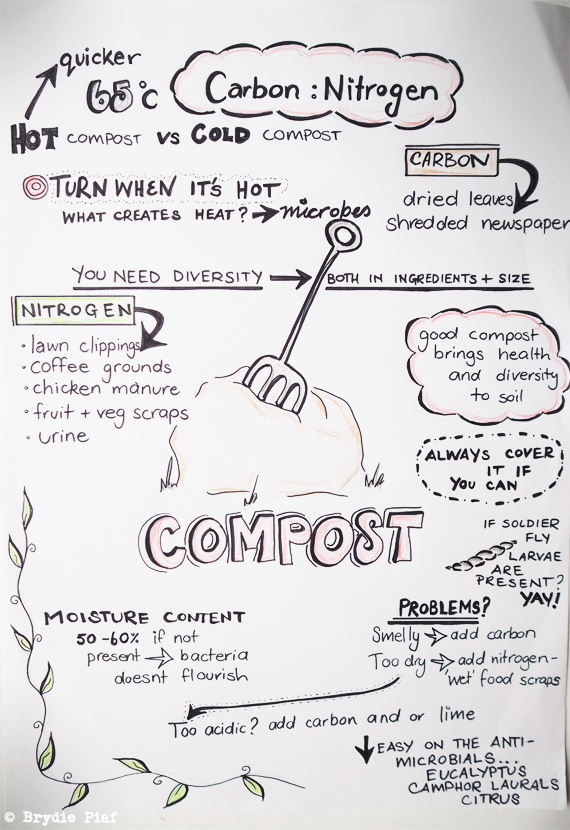 quicker
65°C
Carbon : Nitrogen
HOT COMPOST VS COLD COMPOST
CARBON
dried leaves
shredded newspaper
TURN WHEN IT'S HOT
WHAT CREATES HEAT? → microbes
YOU NEED DIVERSITY → BOTH IN INGREDIENTS + SIZE
NITROGEN
· lawn clippings
· coffee grounds
· chicken manure
· fruit + veg scraps
· urine
good compost
brings health
and diversity
to soil
ALWAYS COVER
IT IF
YOU CAN
COMPOST
IF SOLDIER
FLY
LARVAE
ARE
PRESENT?
YAY!
MOISTURE CONTENT
50-60% if not
present → bacteria
doesnt flourish
PROBLEMS?
Smelly → add carbon
Too dry → add nitrogen-
'wet' food scraps
Too acidic? add carbon and or lime
↓ EASY ON THE ANTI-
MICROBIALS...
EUCALYPTUS
CAMPHOR LAURALS
CITRUS
© Brydie Piaf